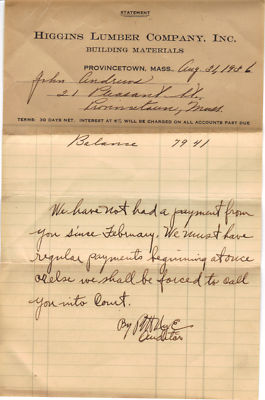 STATEMENT
HIGGINS LUMBER COMPANY, INC.
BUILDING MATERIALS
PROVINCETOWN, MASS., Aug. 31, 1936
John Andrews
21 Pleasant St.
Provincetown, Mass.
TERMS: 30 DAYS NET. INTEREST AT 6% WILL BE CHARGED ON ALL ACCOUNTS PAST DUE
Balance 79 41
We have not had a payment from
you since February. We must have
regular payments beginning at once
or else we shall be forced to call
you into Court.
By
Auditor